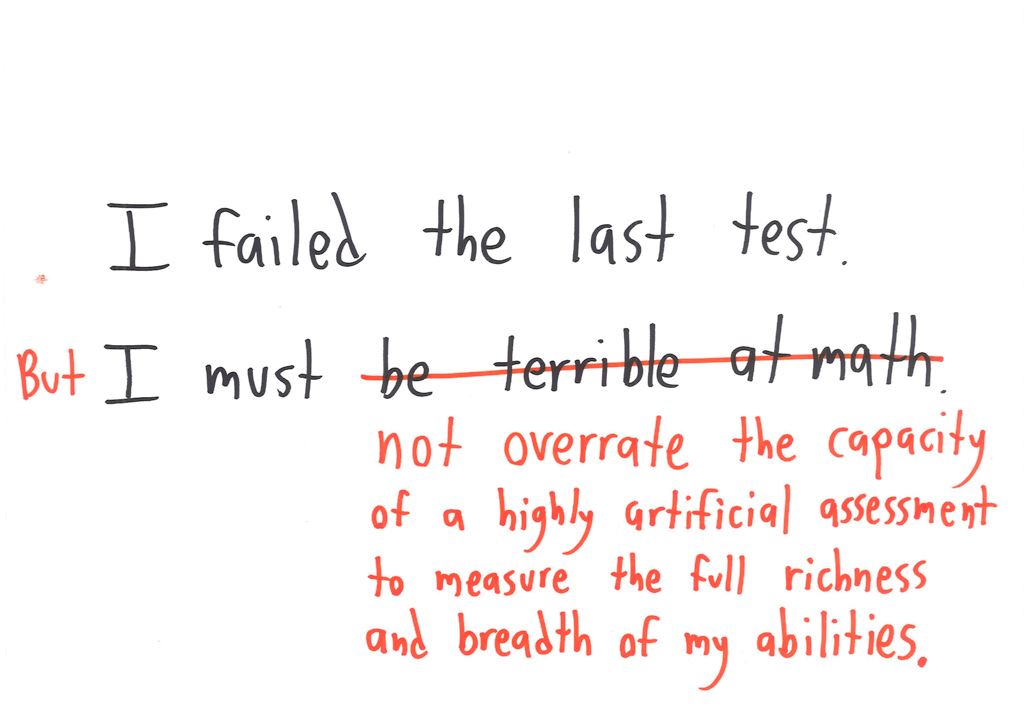 I failed the last test.
But I must be terrible at math.
not overrate the capacity
of a highly artificial assessment
to measure the full richness
and breadth of my abilities.